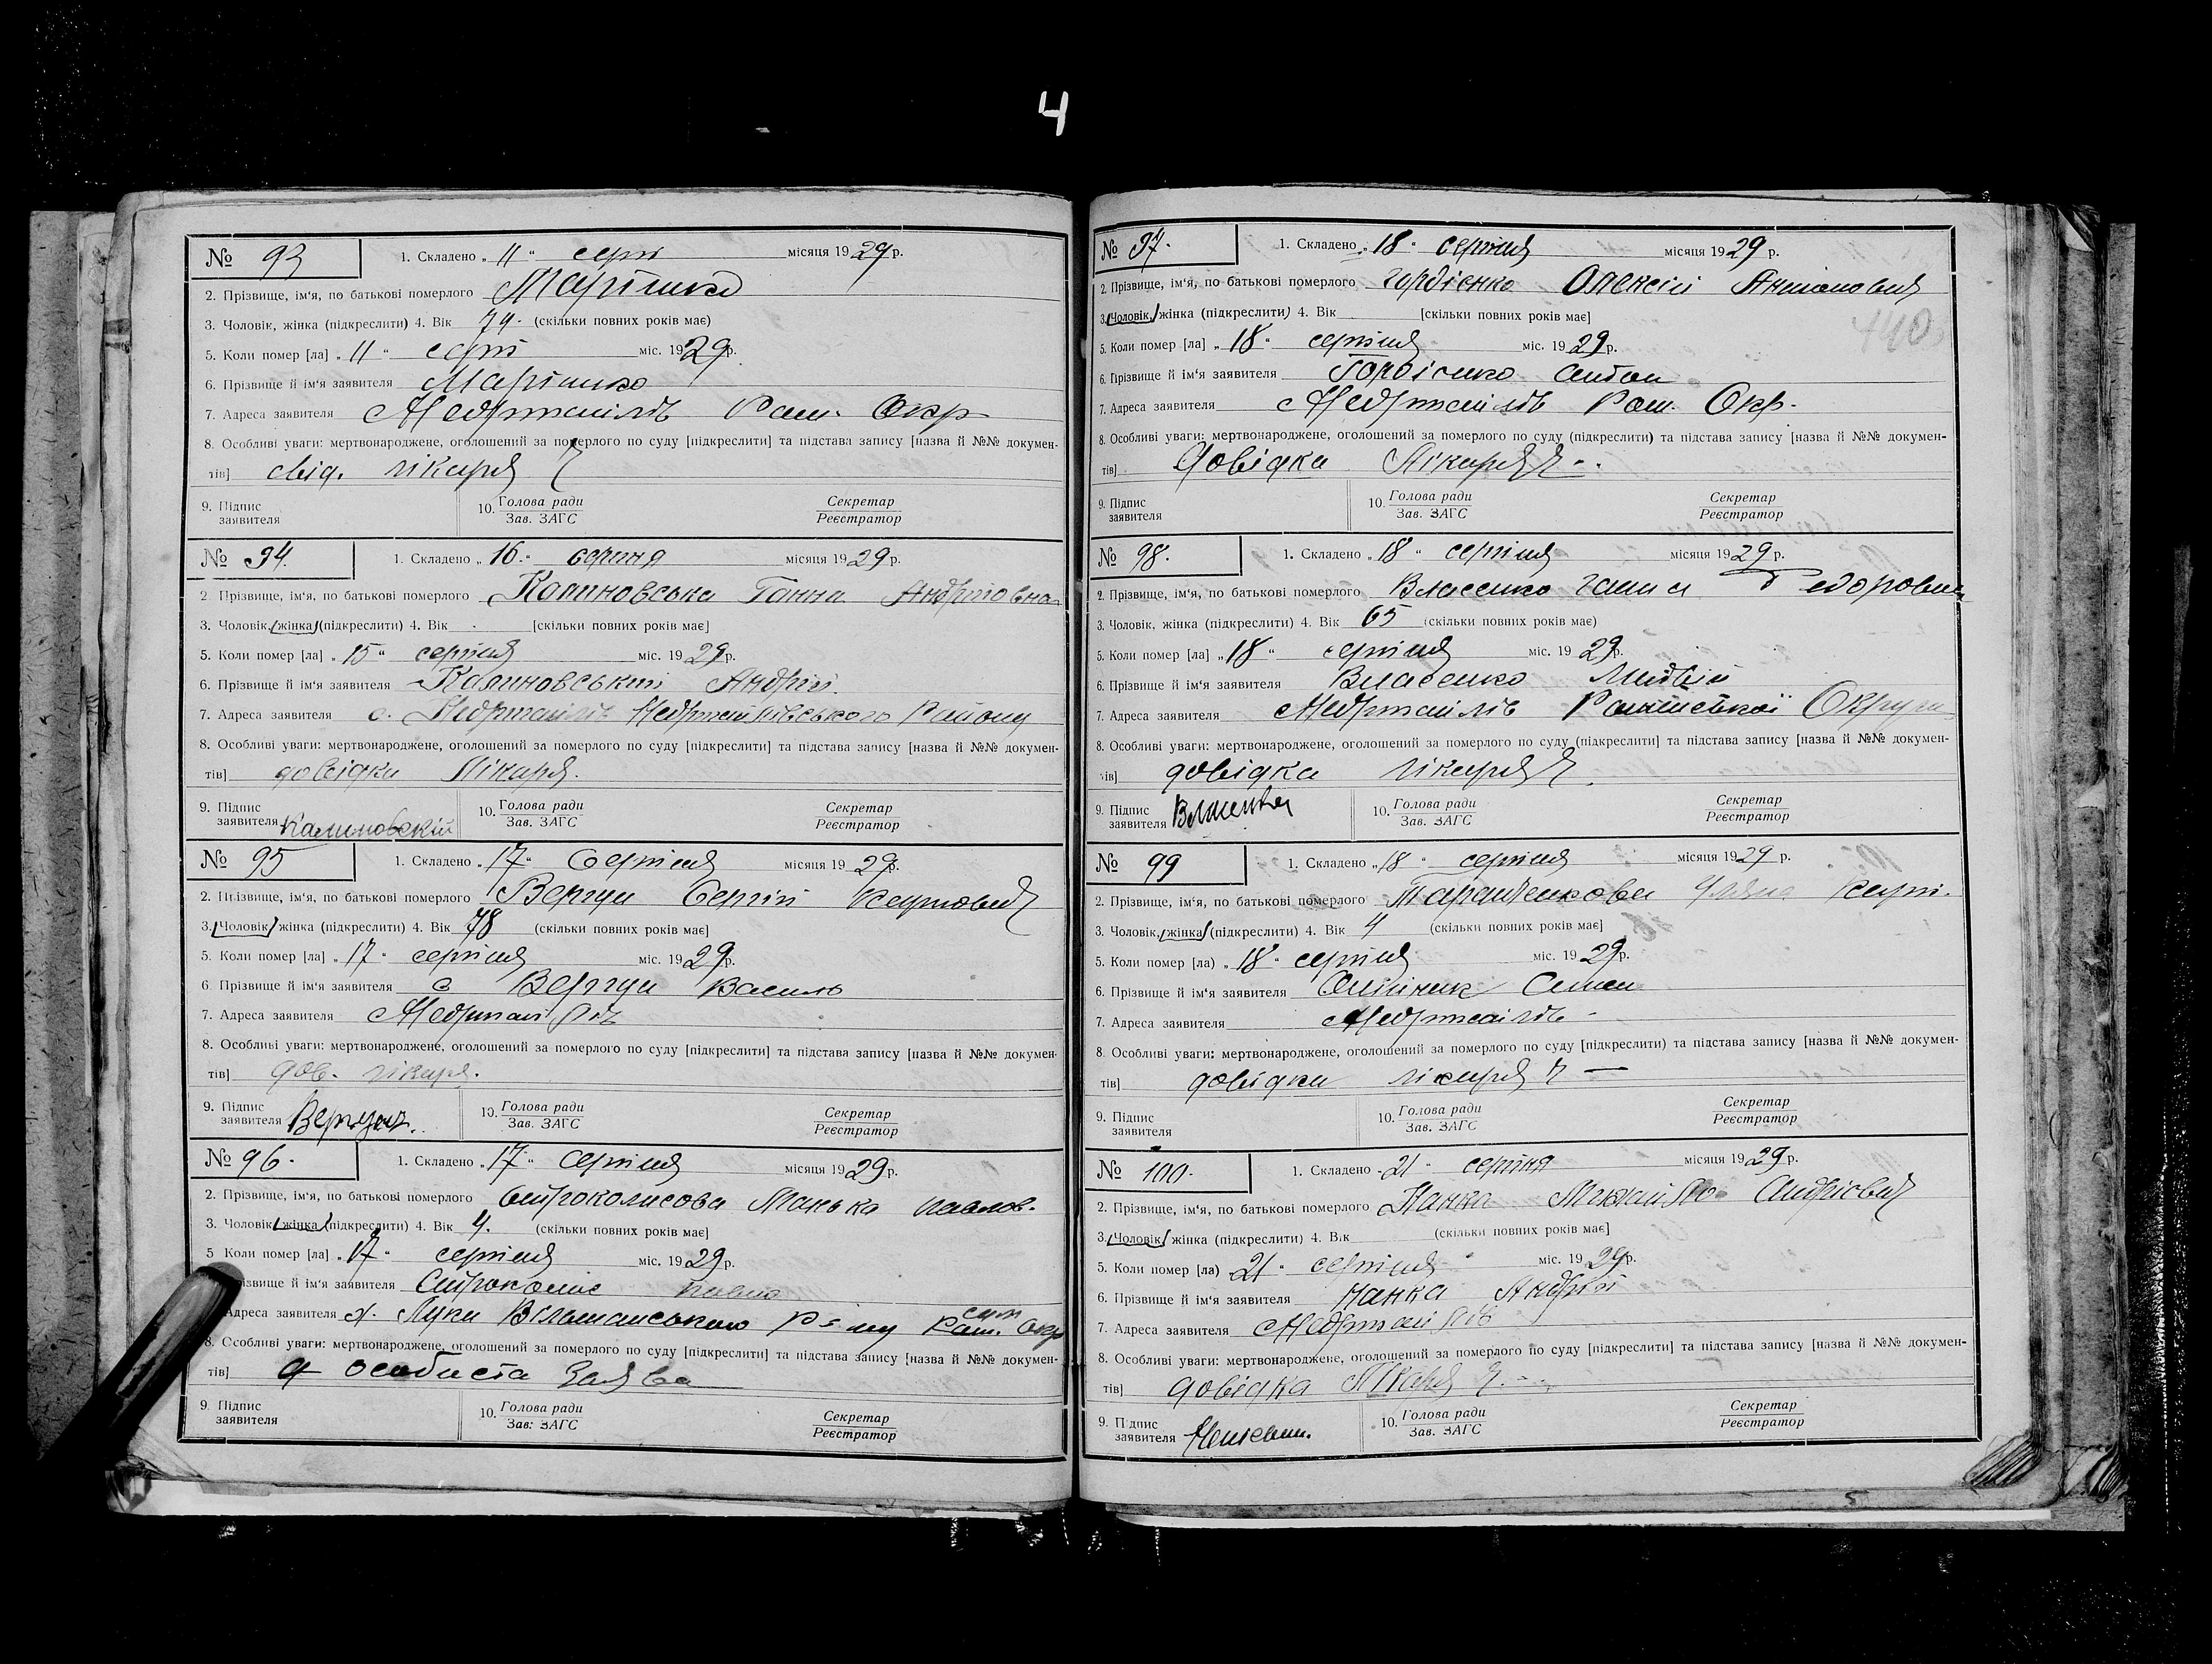 4
№ 93
1. Складено „ 11 “ серп місяця 1929 р.
2. Прізвище, ім‘я, по батькові померлого
3. Чоловік, жінка (підкреслити) 4. Вік 74. (скільки повних років має)
5. Коли помер [ла] „ 11 “ серп міс. 1929 р.
6. Прізвище й ім‘я заявителя
7. Адреса заявителя Недригайлів Ром. Окр
8. Особливі уваги: мертвонароджене, оголошений за померлого по суду [підкреслити] та підстава запису [назва й №№ докумен-
тів] свід. лікаря
9. Підпис заявителя 10. Голова ради Зав. ЗАГС Секретар Реєстратор
№ 94.
1. Складено „ 16 “ серпня місяця 1929 р.
2. Прізвище, ім‘я, по батькові померлого Калиновська Ганна Андріївна
3. Чоловік, жінка (підкреслити) 4. Вік [скільки повних років має]
5. Коли помер [ла] „ 15 “ серпня міс. 1929 р.
6. Прізвище й ім‘я заявителя Калиновський Андрій.
7. Адреса заявителя с. Недригайлів Недригайлівського Району
8. Особливі уваги: мертвонароджене, оголошений за померлого по суду [підкреслити] та підстава запису [назва й №№ докумен-
тів] довідка Лікаря.
9. Підпис заявителя Калиновскій 10. Голова ради Зав. ЗАГС Секретар Реєстратор
№ 95
1. Складено „ 17 “ Серпня місяця 1929 р.
2. Прізвище, ім‘я, по батькові померлого Вергун Сергій
3. Чоловік, жінка (підкреслити) 4. Вік 78 (скільки повних років має]
5. Коли помер [ла] „ 17 “ серпня міс. 1929 р.
6. Прізвище й ім‘я заявителя Вергун Василь
7. Адреса заявителя Недригайлів
8. Особливі уваги: мертвонароджене, оголошений за померлого по суду [підкреслити] та підстава запису [назва й №№ докумен-
тів] дов. лікаря.
9. Підпис заявителя 10. Голова ради Зав. ЗАГС Секретар Реєстратор
№ 96.
1. Складено „ 17 “ Серпня місяця 1929 р.
2. Прізвище, ім‘я, по батькові померлого Манька павлов.
3. Чоловік, жінка (підкреслити) 4. Вік 4. (скільки повних років має]
5 Коли помер [ла] „ 17 “ серпня міс. 1929 р.
ізвище й ім‘я заявителя павло
Адреса заявителя х. Луки Вільшанського Р-ну Окр
8. Особливі уваги: мертвонароджене, оголошений за померлого по суду [підкреслити] та підстава запису [назва й №№ докумен-
тів] особиста Заява
9. Підпис заявителя 10. Голова ради Зав. ЗАГС Секретар Реєстратор
№ 97.
1. Складено „ 18 “ серпня місяця 1929 р.
2. Прізвище, ім‘я, по батькові померлого Гордієнко Олексій Антонович
3. Чоловік, жінка (підкреслити) 4. Вік [скільки повних років має]
5. Коли помер [ла] „ 18 “ серпня міс. 1929 р.
6. Прізвище й ім‘я заявителя Гордієнко Антон
7. Адреса заявителя Недригайлів Ром. Окр.
8. Особливі уваги: мертвонароджене, оголошений за померлого по суду (підкреслити) та підстава запису [назва й №№ докумен-
тів] Довідка Лікаря
9. Підпис заявителя 10. Голова ради Зав. ЗАГС Секретар Реєстратор
№ 98.
1. Складено „ 18 “ серпня місяця 1929 р.
2. Прізвище, ім‘я, по батькові померлого Власенко
3. Чоловік, жінка (підкреслити) 4. Вік 65 (скільки повних років має)
5. Коли помер [ла] „ 18 “ серпня міс. 1929 р.
6. Прізвище й ім‘я заявителя Власенко
7. Адреса заявителя Недригайлів Роменської Округи
8. Особливі уваги: мертвонароджене, оголошений за померлого по суду (підкреслити] та підстава запису [назва й №№ докумен-
тів] довідка лікаря
9. Підпис заявителя 10. Голова ради Зав. ЗАГС Секретар Реєстратор
№ 99
1. Складено „ 18 “ серпня місяця 1929 р.
2. Прізвище, ім‘я, по батькові померлого Уляна
3. Чоловік, жінка (підкреслити) 4. Вік 4 (скільки повних років має]
5. Коли помер [ла) „ 18 “ серпня міс. 1929 р.
6. Прізвище й ім‘я заявителя
7. Адреса заявителя Недригайлів
8. Особливі уваги: мертвонароджене, оголошений за померлого по суду [підкреслити) та підстава запису [назва й №№ докумен-
тів] довідка лікаря
9. Підпис заявителя 10. Голова ради Зав. ЗАГС Секретар Реєстратор
№ 100.
1. Складено „ 21 “ серпня місяця 1929 р.
2. Прізвище, ім‘я, по батькові померлого Нанка Михайло Андрієвич
3. Чоловік, жінка (підкреслити) 4. Вік (скільки повних років має]
5. Коли помер [ла) 21 “ серпня міс. 1929 р.
6. Прізвище й ім‘я заявителя Нанка Андрій
7. Адреса заявителя Недригайлів
8. Особливі уваги: мертвонароджене, оголошений за померлого по суду [підкреслити] та підстава запису [назва й №№ докумен-
тів] довідка Лікаря
9. Підпис заявителя 10. Голова ради Зав. ЗАГС Секретар Реєстратор
5